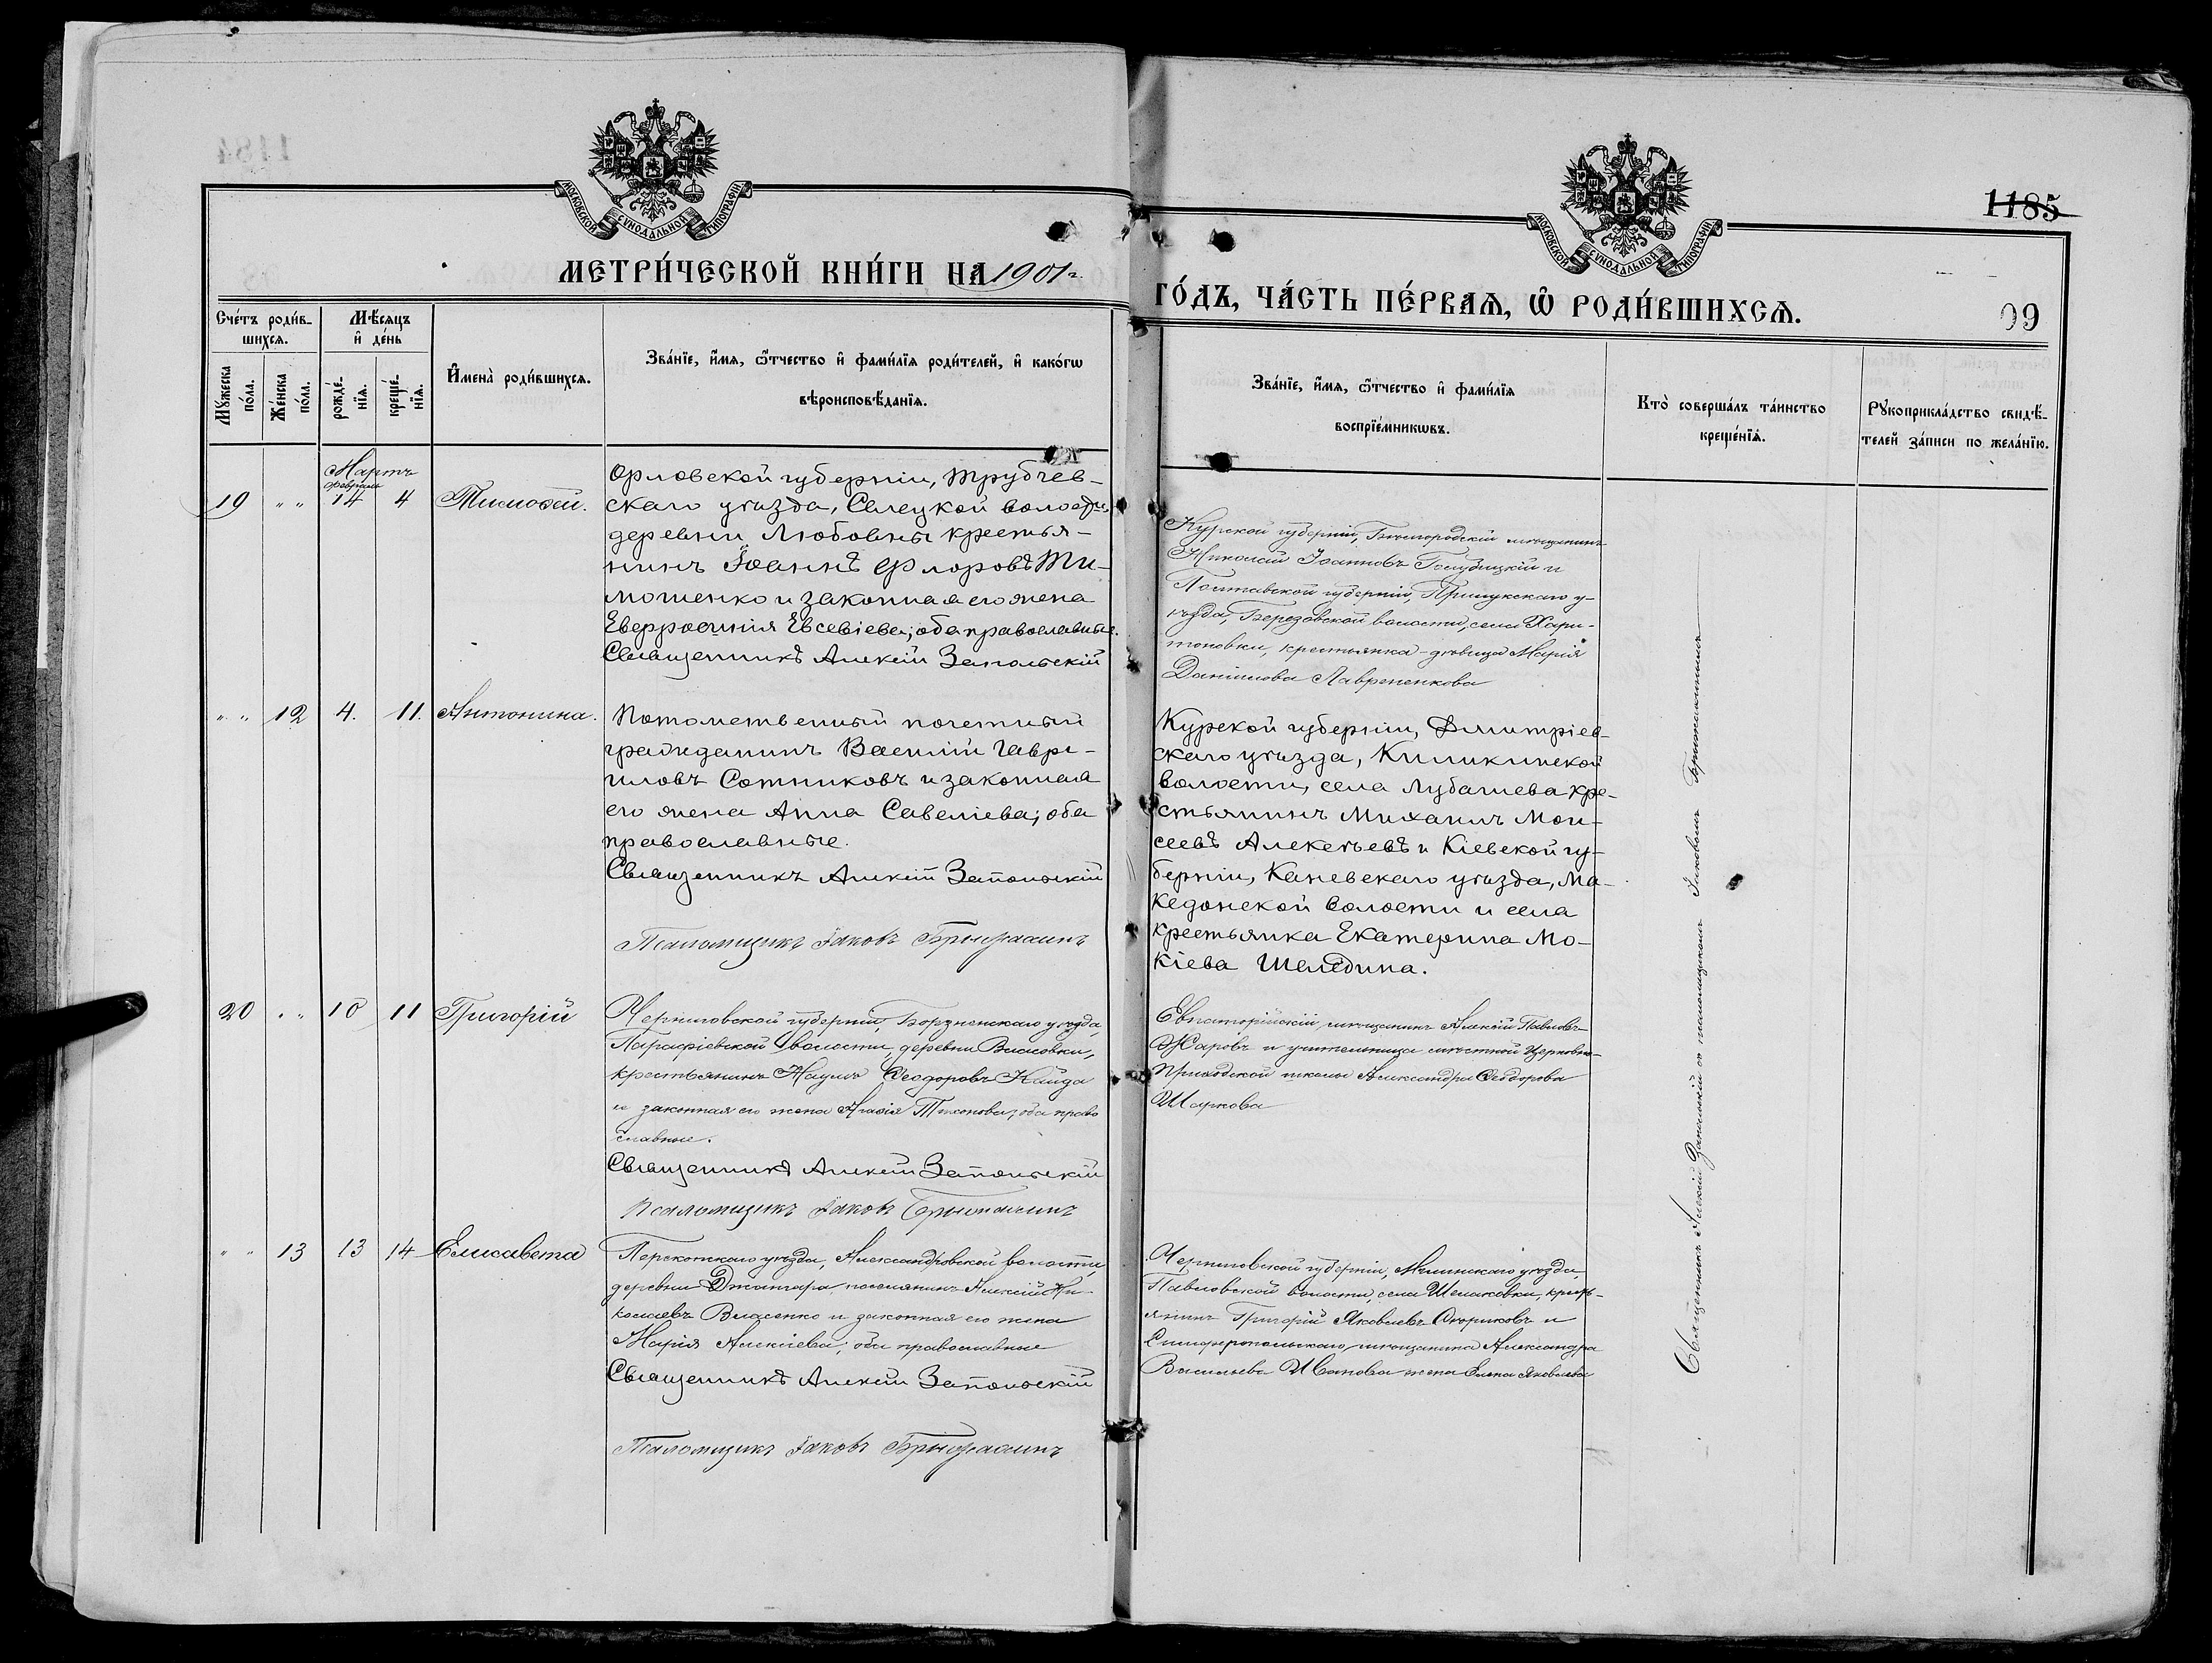 1185
МОСКОВСКОЙ СУНОДАЛЬНОЙ ТИПОГРАФІИ
МОСКОВСКОЙ СУНОДАЛЬНОЙ ТИПОГРАФІИ
МЕТРИ́ЧЕСКОЙ КНИ́ГИ НА 1901 г.
ГО́ДЪ, ЧА́СТЬ ПЕ́РВАѦ, Ѡ РОДИ́ВШИХСѦ.
99
Сче́тъ роди́в-
шихсѧ.
Мѣ́сѧцъ
и҆ де́нь
Мꙋ́жеска
по́ла.
Же́нска
по́ла.
рожде́-
нїѧ.
креще́-
нїѧ.
И҆мена̀ роди́вшихсѧ.
Зва́нїе, и҆́мѧ, ѻ҆́тчество и҆ фами́лїѧ роди́телей, и҆ како́гѡ
вѣроисповѣ́данїѧ.
Зва́нїе, и҆́мѧ, ѻ҆́тчество и҆ фами́лїѧ
воспрїе́мникѡвъ.
Кто̀ соверша́лъ та́инство
креще́нїѧ.
Рꙋкоприкла́дство свидѣ́-
телей за́писи по жела́нїю.
Мартъ
Февраля
19 " " 14 4 Тимоѳей.
Орловской губерніи, Трубчев-
скаго уѣзда, Селецкой волости,
деревни Любовны крестья-
нинъ Іоаннъ Флоровъ Ти-
мошенко и законная его жена
Евфросинія Евсевіева; оба православные.
Священникъ Алексій Запольскій
Курской губерніи, Бѣлгородскій мѣщанинъ
Николай Іоанновъ Голубицкій и
Полтавской губерніи, Прилукскаго у-
ѣзда, Березовской волости, села Хари-
тоновки, крестьянка-дѣвица Марія
Даніилова Лавриненкова
" " 12 4. 11. Антонина.
Потомственный почетный
гражданинъ Василій Гаврі-
иловъ Сотниковъ и законная
его жена Анна Савеліева; оба
православные.
Священникъ Алексій Запольскій
Псаломщикъ Іаковъ
Курской губерніи, Дмитріев-
скаго уѣзда, Киликинской
волости, села Лубашева кре-
стьянинъ Михаилъ Мои-
сеевъ Алексѣевъ и Кіевской гу-
берніи, Каневскаго уѣзда, Ма-
кедонской волости и села
крестьянка Екатерина Мо-
кіева Шелудина.
20 " " 10 11 Григорій
Черниговской губерніи, Борзненскаго уѣзда,
Парафіевской волости, деревни Власовки,
крестьянинъ Наумъ Ѳеодоровъ Кайда
и законная его жена Агафія Тихонова; оба право
славные.
Священникъ Алексій Запольскій
Псаломщикъ Іаковъ
Евпаторійскій мѣщанинъ Алексій Павловъ
Жаровъ и учительница мѣстной Церковно-
Приходской школы Александра Ѳеодорова
Шаркова
" " 13 13 14 Елисавета
Перекопскаго уѣзда, Александровской волости,
деревни Джангара, поселянинъ Алексій Ни-
колаевъ Власенко и законная его жена
Марія Алексіева; оба православные
Священникъ Алексій Запольскій
Псаломщикъ Іаковъ
Черниговской губерніи, Мглинскаго уѣзда,
Павловской волости, села Шелаковки, кресть-
янинъ Григорій Яковлевъ и
Симферопольскаго мѣщанина Александра
Васильева Иванова жена Елена Яковлева
Священникъ Алексій Запольскій съ псаломщикомъ Іаковомъ